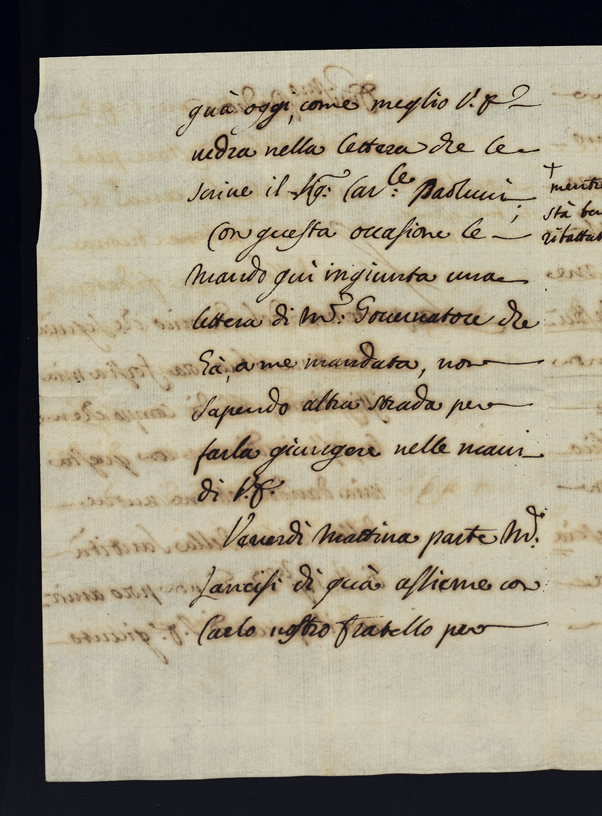 quà oggi, come meglio V. S.
vedrà nella lettera che le
scrive il Sig.r Car.le Paolucci;
Con questa occasione le
mando quì ingiunta una
lettera di M.r Governatore che
hà, a me mandata, non
sapendo altra strada per
farla giungere nelle mani
di V. S.
Venerdì mattina parte M.r
Lancisi di quà assieme con
Carlo nostro fratello per
+
stà